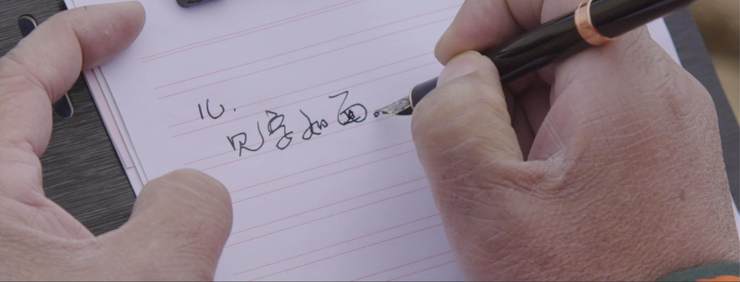 见字如面。